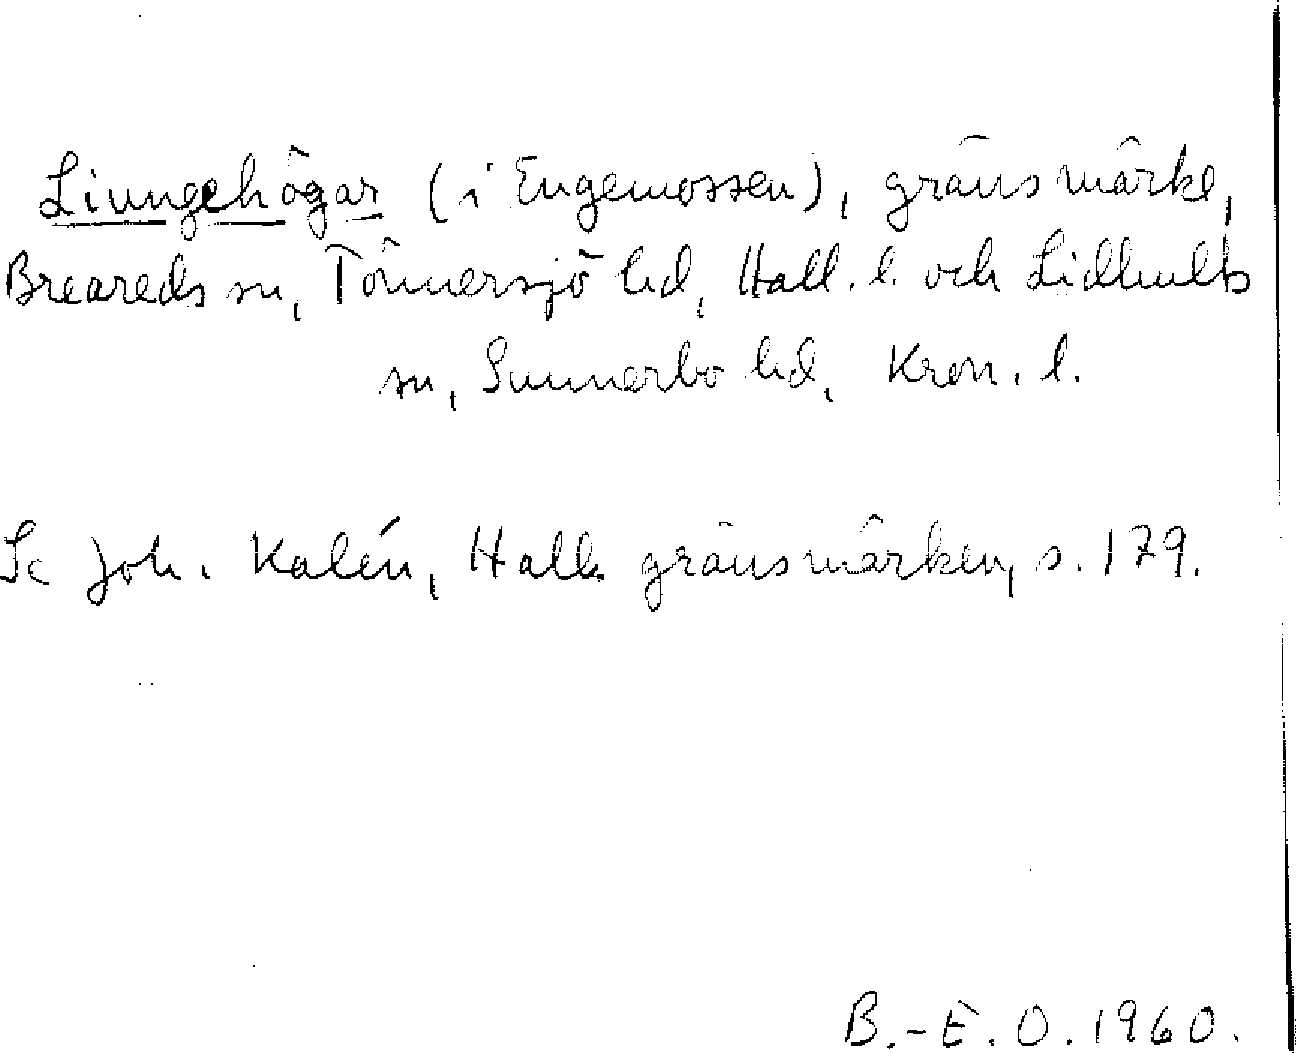 Liungehögar (i Engemossen), gränsmärke,
Breareds sn, Tönnersjö hd, Hall. l. och Lidhults
sn, Sunnerbo hd, Kron. l.
Se Joh. Kalén, Halls gränsmärken, s. 179.
B.-E. O. 1960.